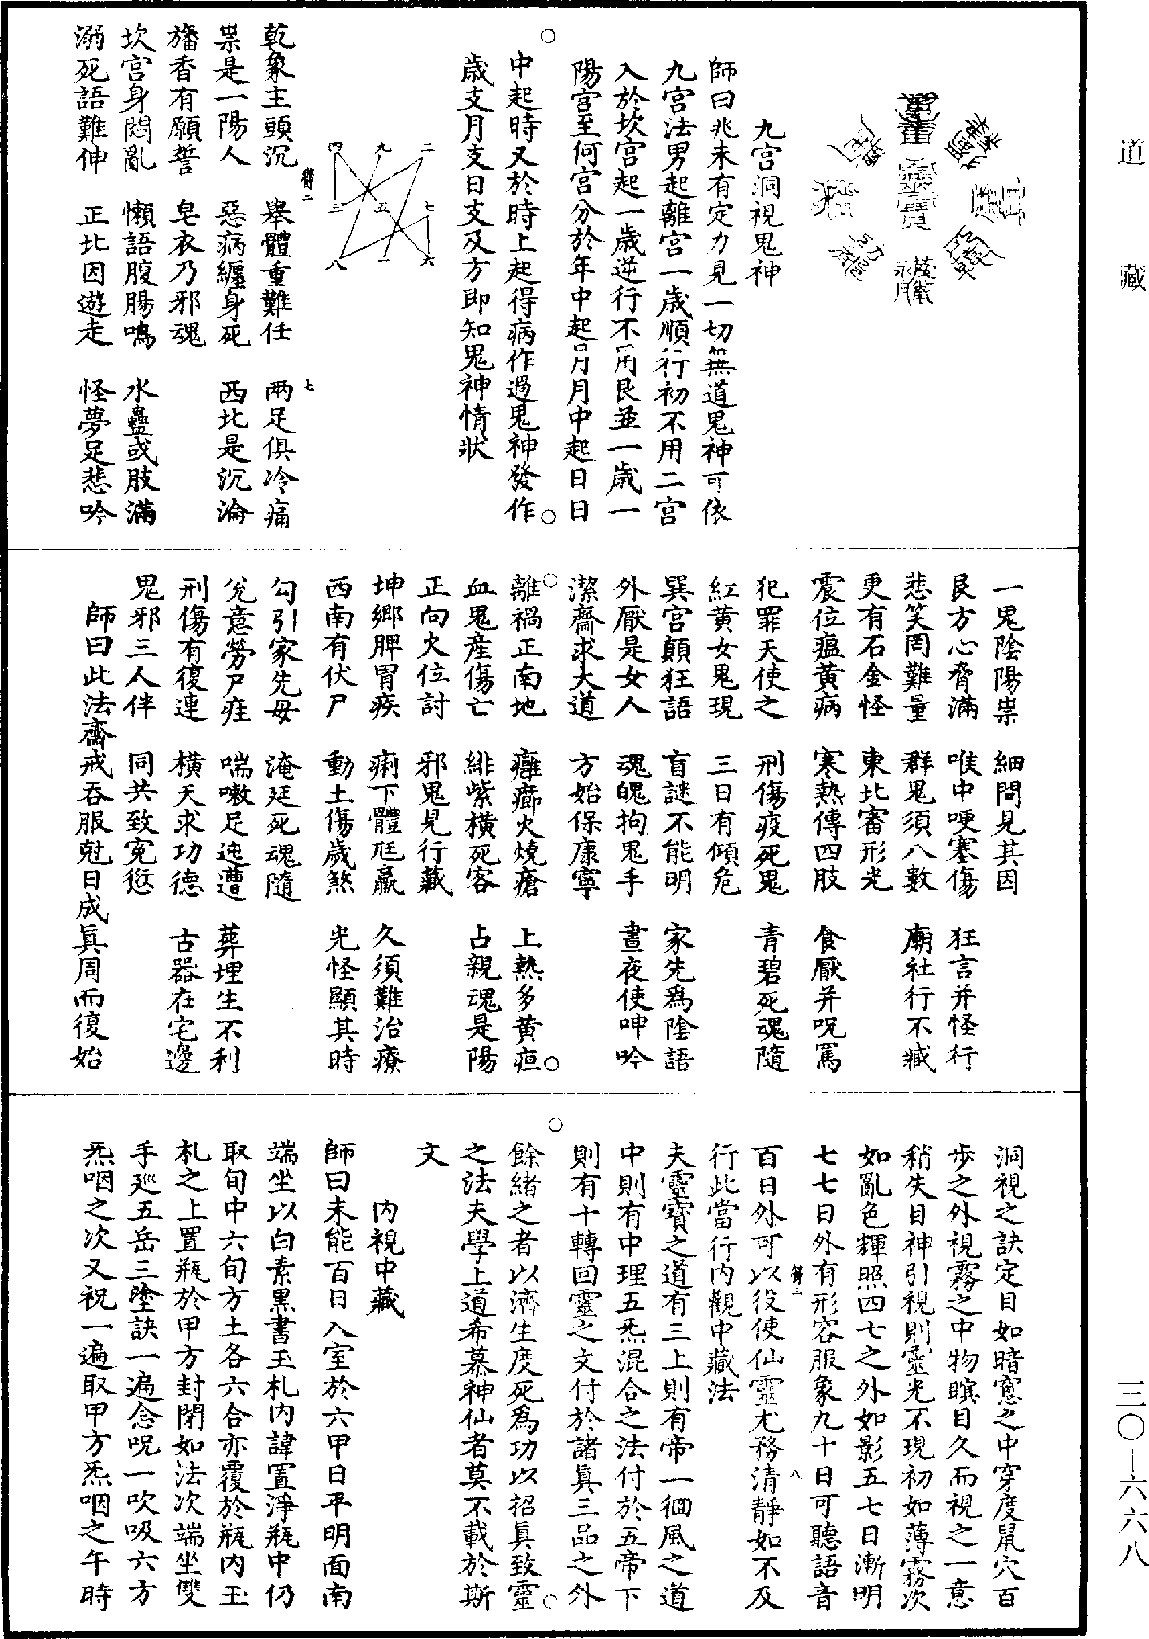 道藏
九宮洞視鬼神
師曰兆未有定力見一切無道鬼神可依
九宮法男起離宮一歲順行初不用二宮
入於坎宮起一歲逆行不用艮並一歲一
陽宮至何宮分於年中起月月中起日日
中起時又於時上起得病作過鬼神發作
歲支月支日支及方即知鬼神情狀
二 七 六
九 五 一
四 三 八
乾象主頭沉 舉體重難任 兩足俱冷痛
祟是一陽人 惡病纏身死 西北是沉淪
旛香有願誓 皂衣乃邪魂
坎宮身悶亂 懶語腹腸鳴 水蠱或肢滿
溺死語難伸 正北因遊走 怪夢足悲吟
一鬼陰陽祟 細問見其因
艮方心脅滿 喉中哽塞傷 狂言并怪行
悲笑罔難量 群鬼須八數 廟社行不臧
更有石金怪 東北審形光
震位瘟黃病 寒熱傳四肢 食厭并呪罵
犯罪天使之 刑傷疫死鬼 青碧死魂隨
紅黃女鬼現 三日有傾危
巽宮顛狂語 盲謎不能明 家先為陰語
外厭是女人 魂魄拘鬼手 晝夜使呻吟
潔齋求大道 方始保康寧
離禍正南地 癰癤火燒瘡 上熱多黃疸
血鬼產傷亡 緋紫橫死客 占親魂是陽
正向火位討 邪鬼見行藏
坤鄉脾胃疾 痢下體尪羸 久須難治療
西南有伏尸 動土傷歲煞 光怪顯其時
勾引家先母 淹延死魂隨
兌意勞尸疰 喘嗽足迍遭 葬埋生不利
刑傷有復連 橫夭求功德 古器在宅邊
鬼邪三人伴 同共致冤愆
師曰此法齋戒吞服尅日成真周而復始
洞視之訣定目如暗窓之中穿度鼠穴百
步之外視霧之中物瞑目久而視之一意
稍失目神引視則靈光不現初如薄霧次
如亂色輝照四七之外如影五七日漸明
七七日外有形容服象九十日可聽語音
百日外可以役使仙靈尤務清靜如不及
行此當行內觀中藏法
夫靈寶之道有三上則有帝一徊風之道
中則有中理五炁混合之法付於五帝下
則有十轉回靈之文付於諸真三品之外
餘緒之者以濟生度死為功以招真致靈
之法夫學上道希慕神仙者莫不載於斯
文
內視中藏
師曰未能百日入室於六甲日平明面南
端坐以白素黑書玉札內諱置淨瓶中仍
取旬中六旬方土各六合亦覆於瓶內玉
札之上置瓶於甲方封閉如法次端坐雙
手廵五岳三墬訣一遍念呪一吹吸六方
炁咽之次又祝一遍取甲方炁咽之午時
三〇—六六八